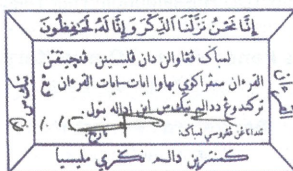 إِنَّا نَحْنُ نَزَّلْنَا ٱلذِّكْرَ وَإِنَّا لَهُۥ لَحَٰفِظُونَ
لمباݢ ڤڠاوالن دان ڤليسينن ڤنچيتقن
القرءان سڤراكوي بهاوا ايات-ايات القرءان يڠ
تركندوڠ ددالم
اين اداله بتول.
تنداتاڠن ڤڠروسي لمباݢ:
تاريخ:
كمنترين دالم نݢري مليسيا